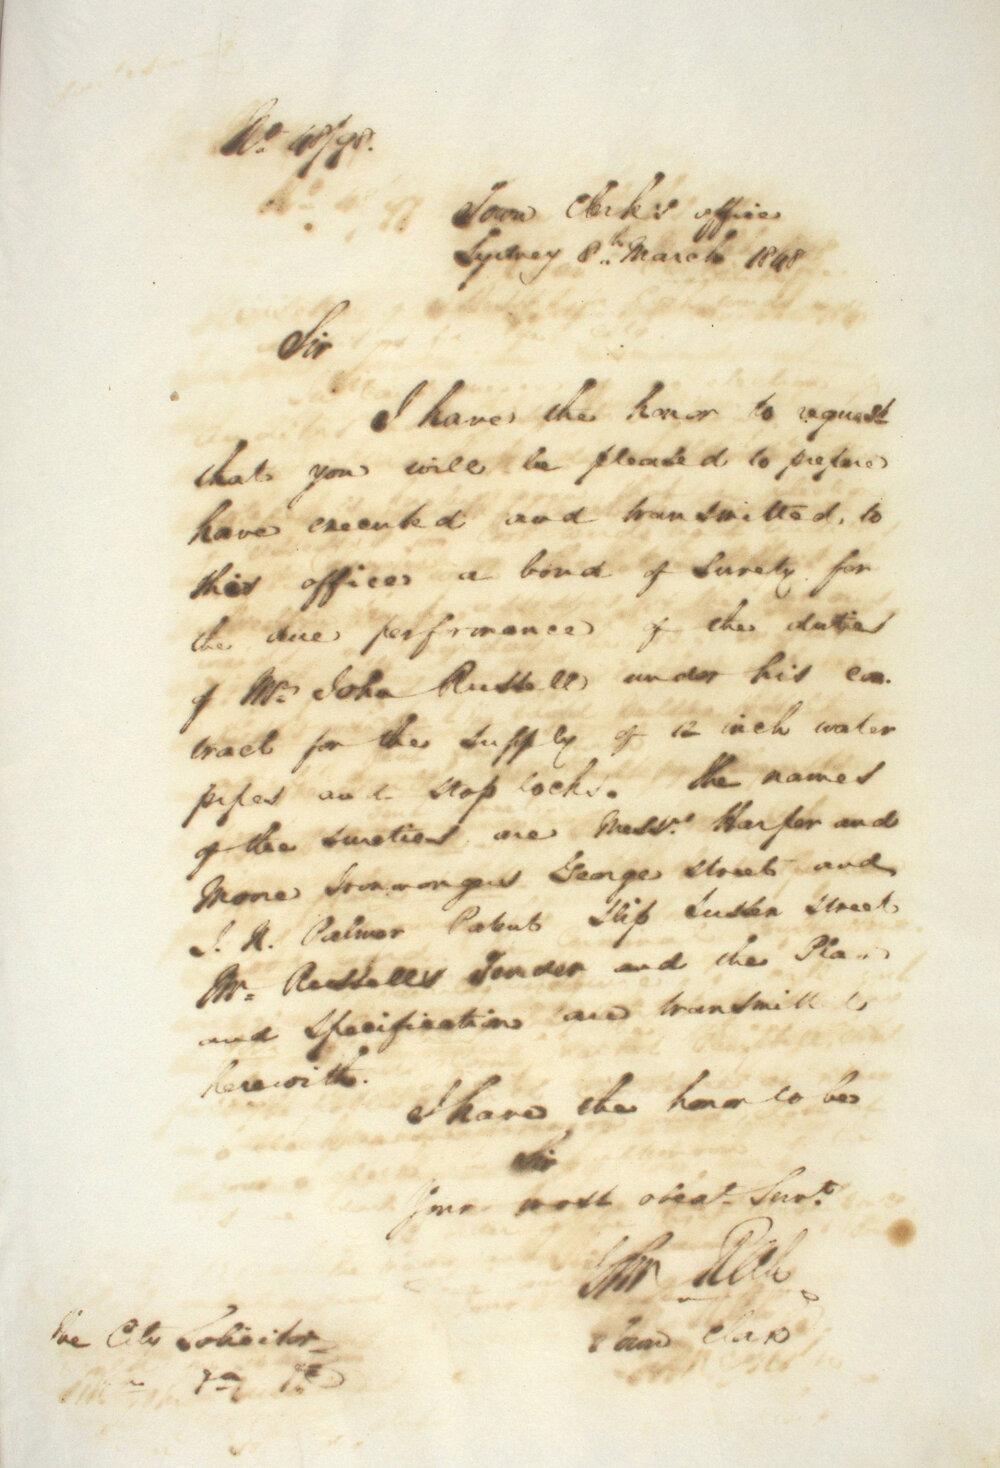 No. 48/98.
Town Clerk's office
Sydney 8th March 1848
Sir
I have the honor to request
that you will be pleased to prepare
have executed and transmitted, to
this office a bond of surety for
the due performance of the duties
of Mr. John Russell under his con
tract for the supply of 12 inch water
pipes and stop cocks. The names
of the sureties are Messrs. Harper and
Moore Ironmongers George street and
J. H. Palmer Patent Slip Sussex street
Mr. Russell's Tender and the Plan
and specification are transmitted
herewith.
I have the honor to be
Sir
Your most obedt. Servt.
John
Town Clerk
The City Solicitor